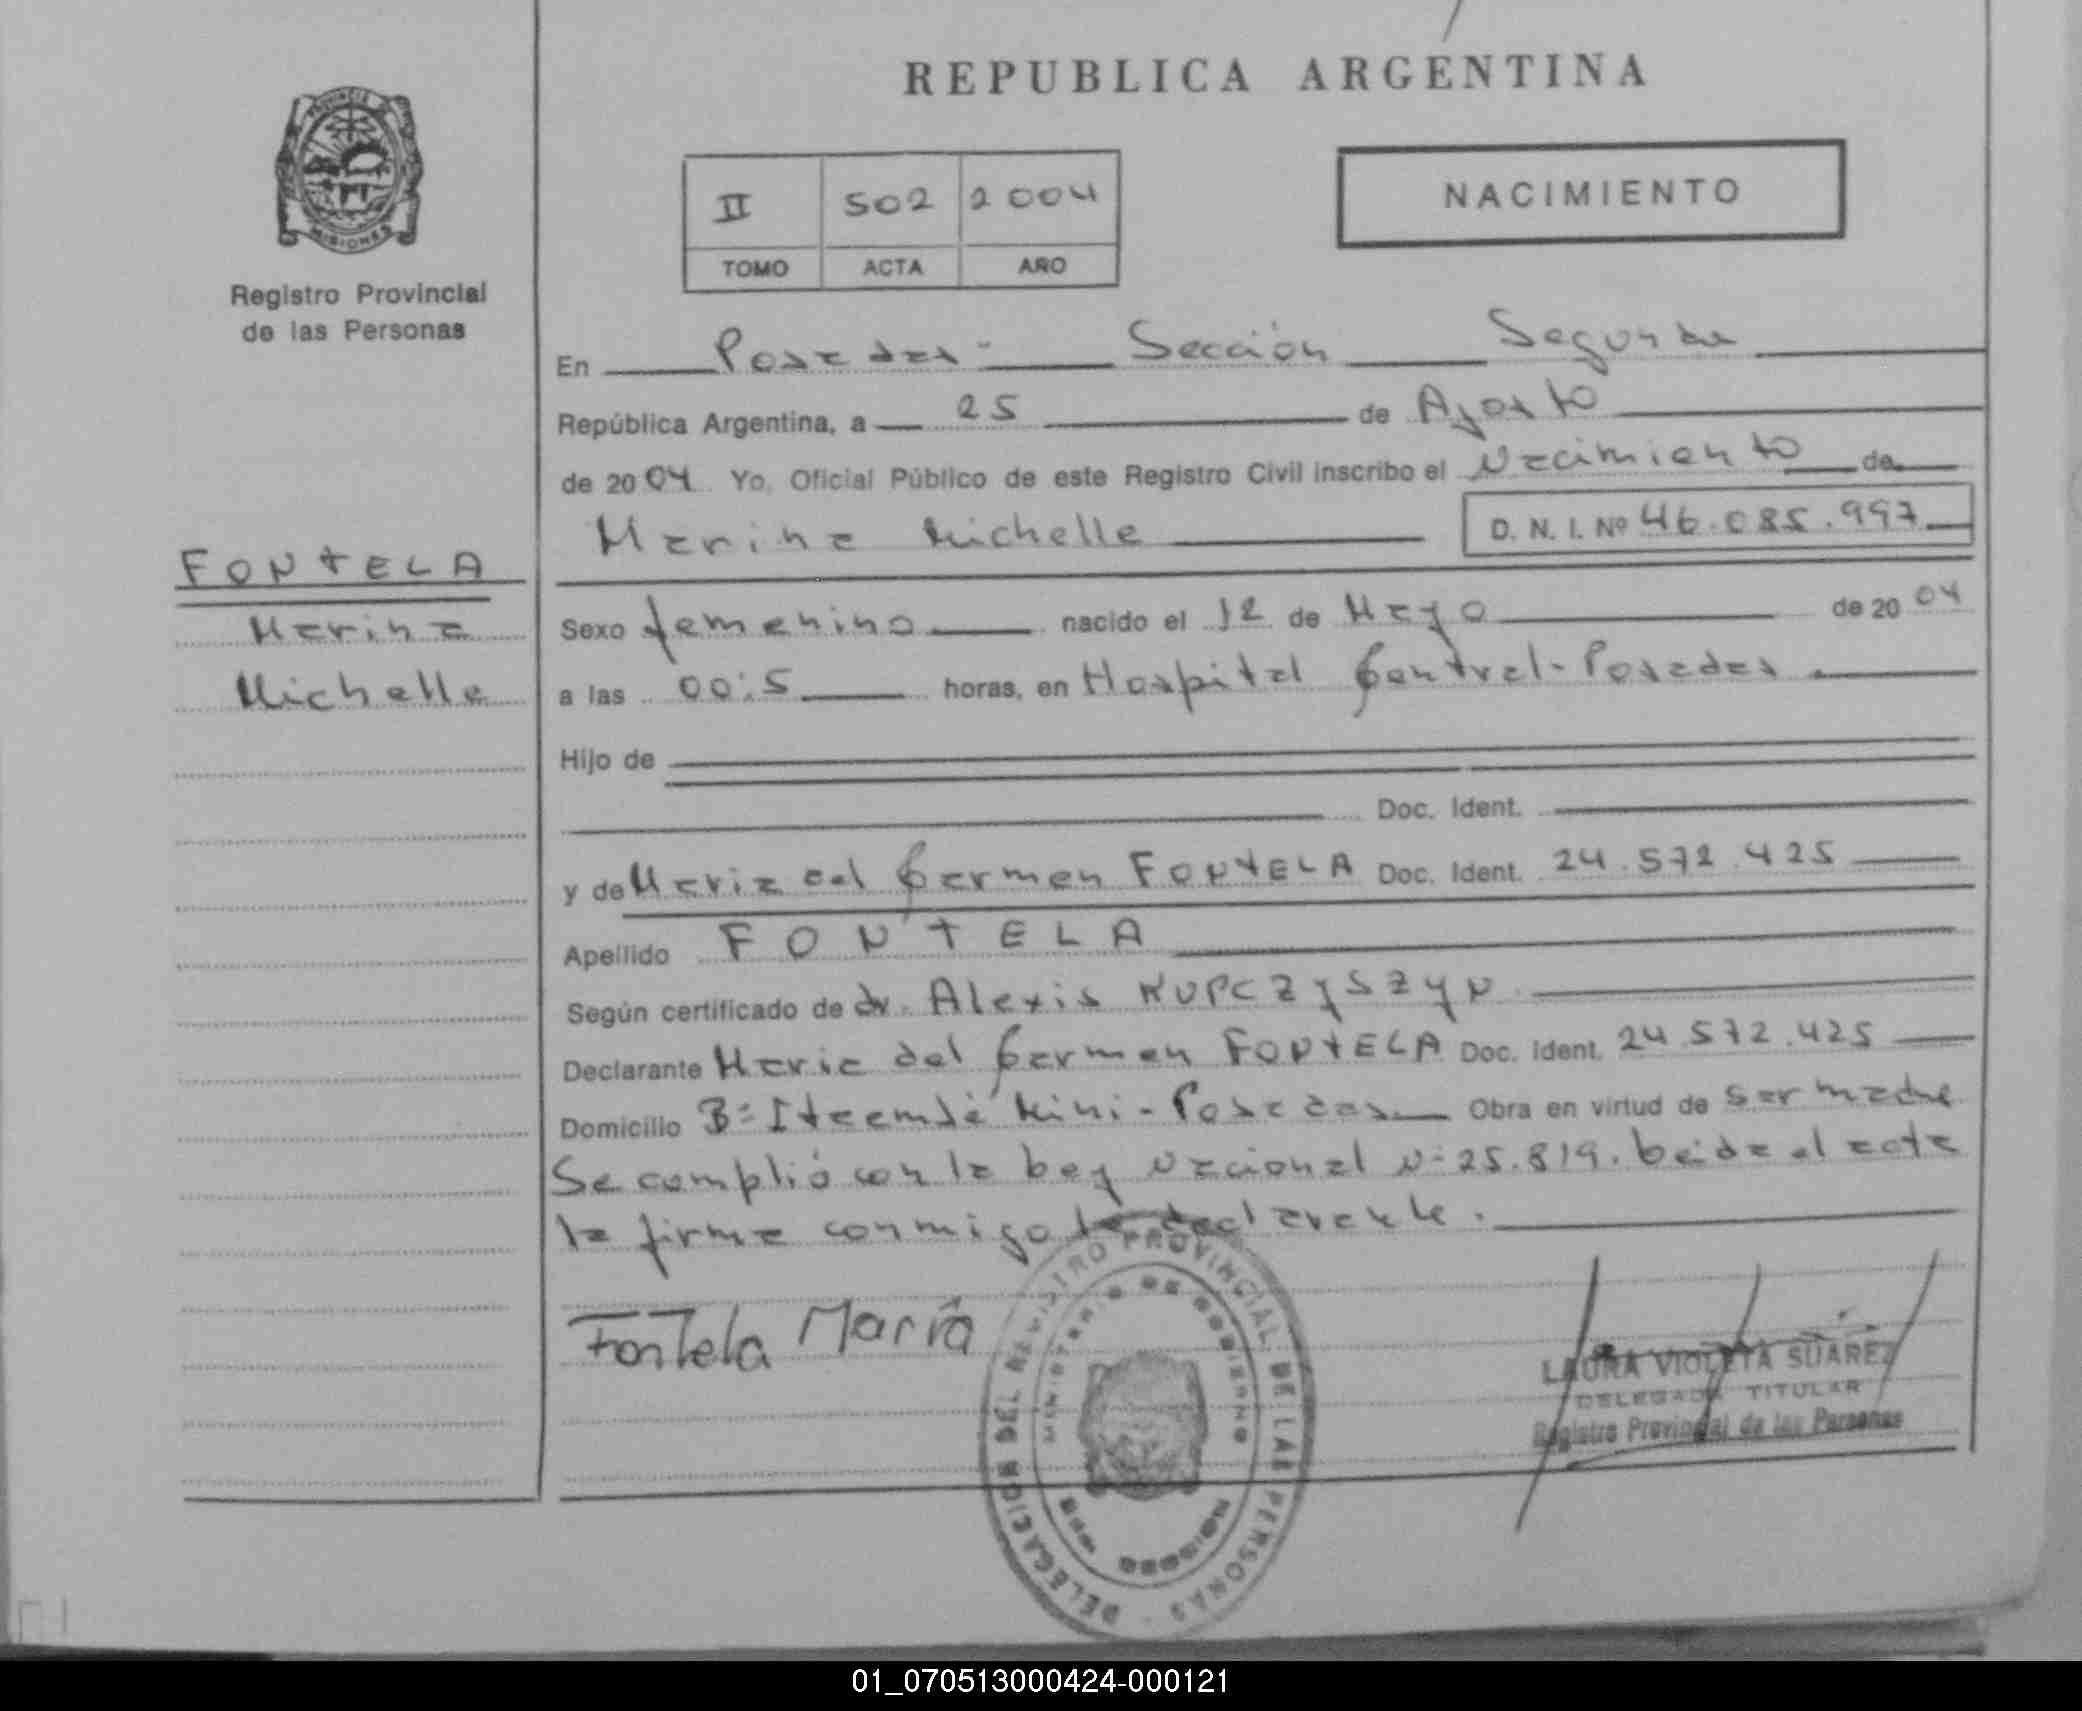 REPUBLICA ARGENTINA
PROVINCIA DE
MISIONES
Registro Provincial
de las Personas
II 502 2004
TOMO ACTA AÑO
NACIMIENTO
En Posadas - Sección Segunda
República Argentina, a 25 de Agosto
de 2004 Yo, Oficial Público de este Registro Civil inscribo el Nacimiento de
Marina Michelle D. N. I. Nº 46.085.997
FONTELA
Marina
Michelle
Sexo femenino nacido el 12 de Mayo de 2004
a las 00:5 horas, en Hospital Central - Posadas
Hijo de
Doc. Ident.
y de Maria del Carmen FONTELA Doc. Ident. 24.572.425
Apellido FONTELA
Según certificado de dr. Alexis KUPCZYSZYN
Declarante Maria del Carmen FONTELA Doc. Ident. 24.572.425
Domicilio Bº Itaembé Mini - Posadas Obra en virtud de ser madre
Se complió con la Ley Nacional Nº 25.819. Leida el acta
la firma conmigo la declarante.
Fontela María
DELEGACION DEL REGISTRO PROVINCIAL DE LAS PERSONAS
MINISTERIO DE GOBIERNO
MISIONES
LAURA VIOLETA SUAREZ
DELEGADA TITULAR
Registro Provincial de las Personas
01_070513000424-000121